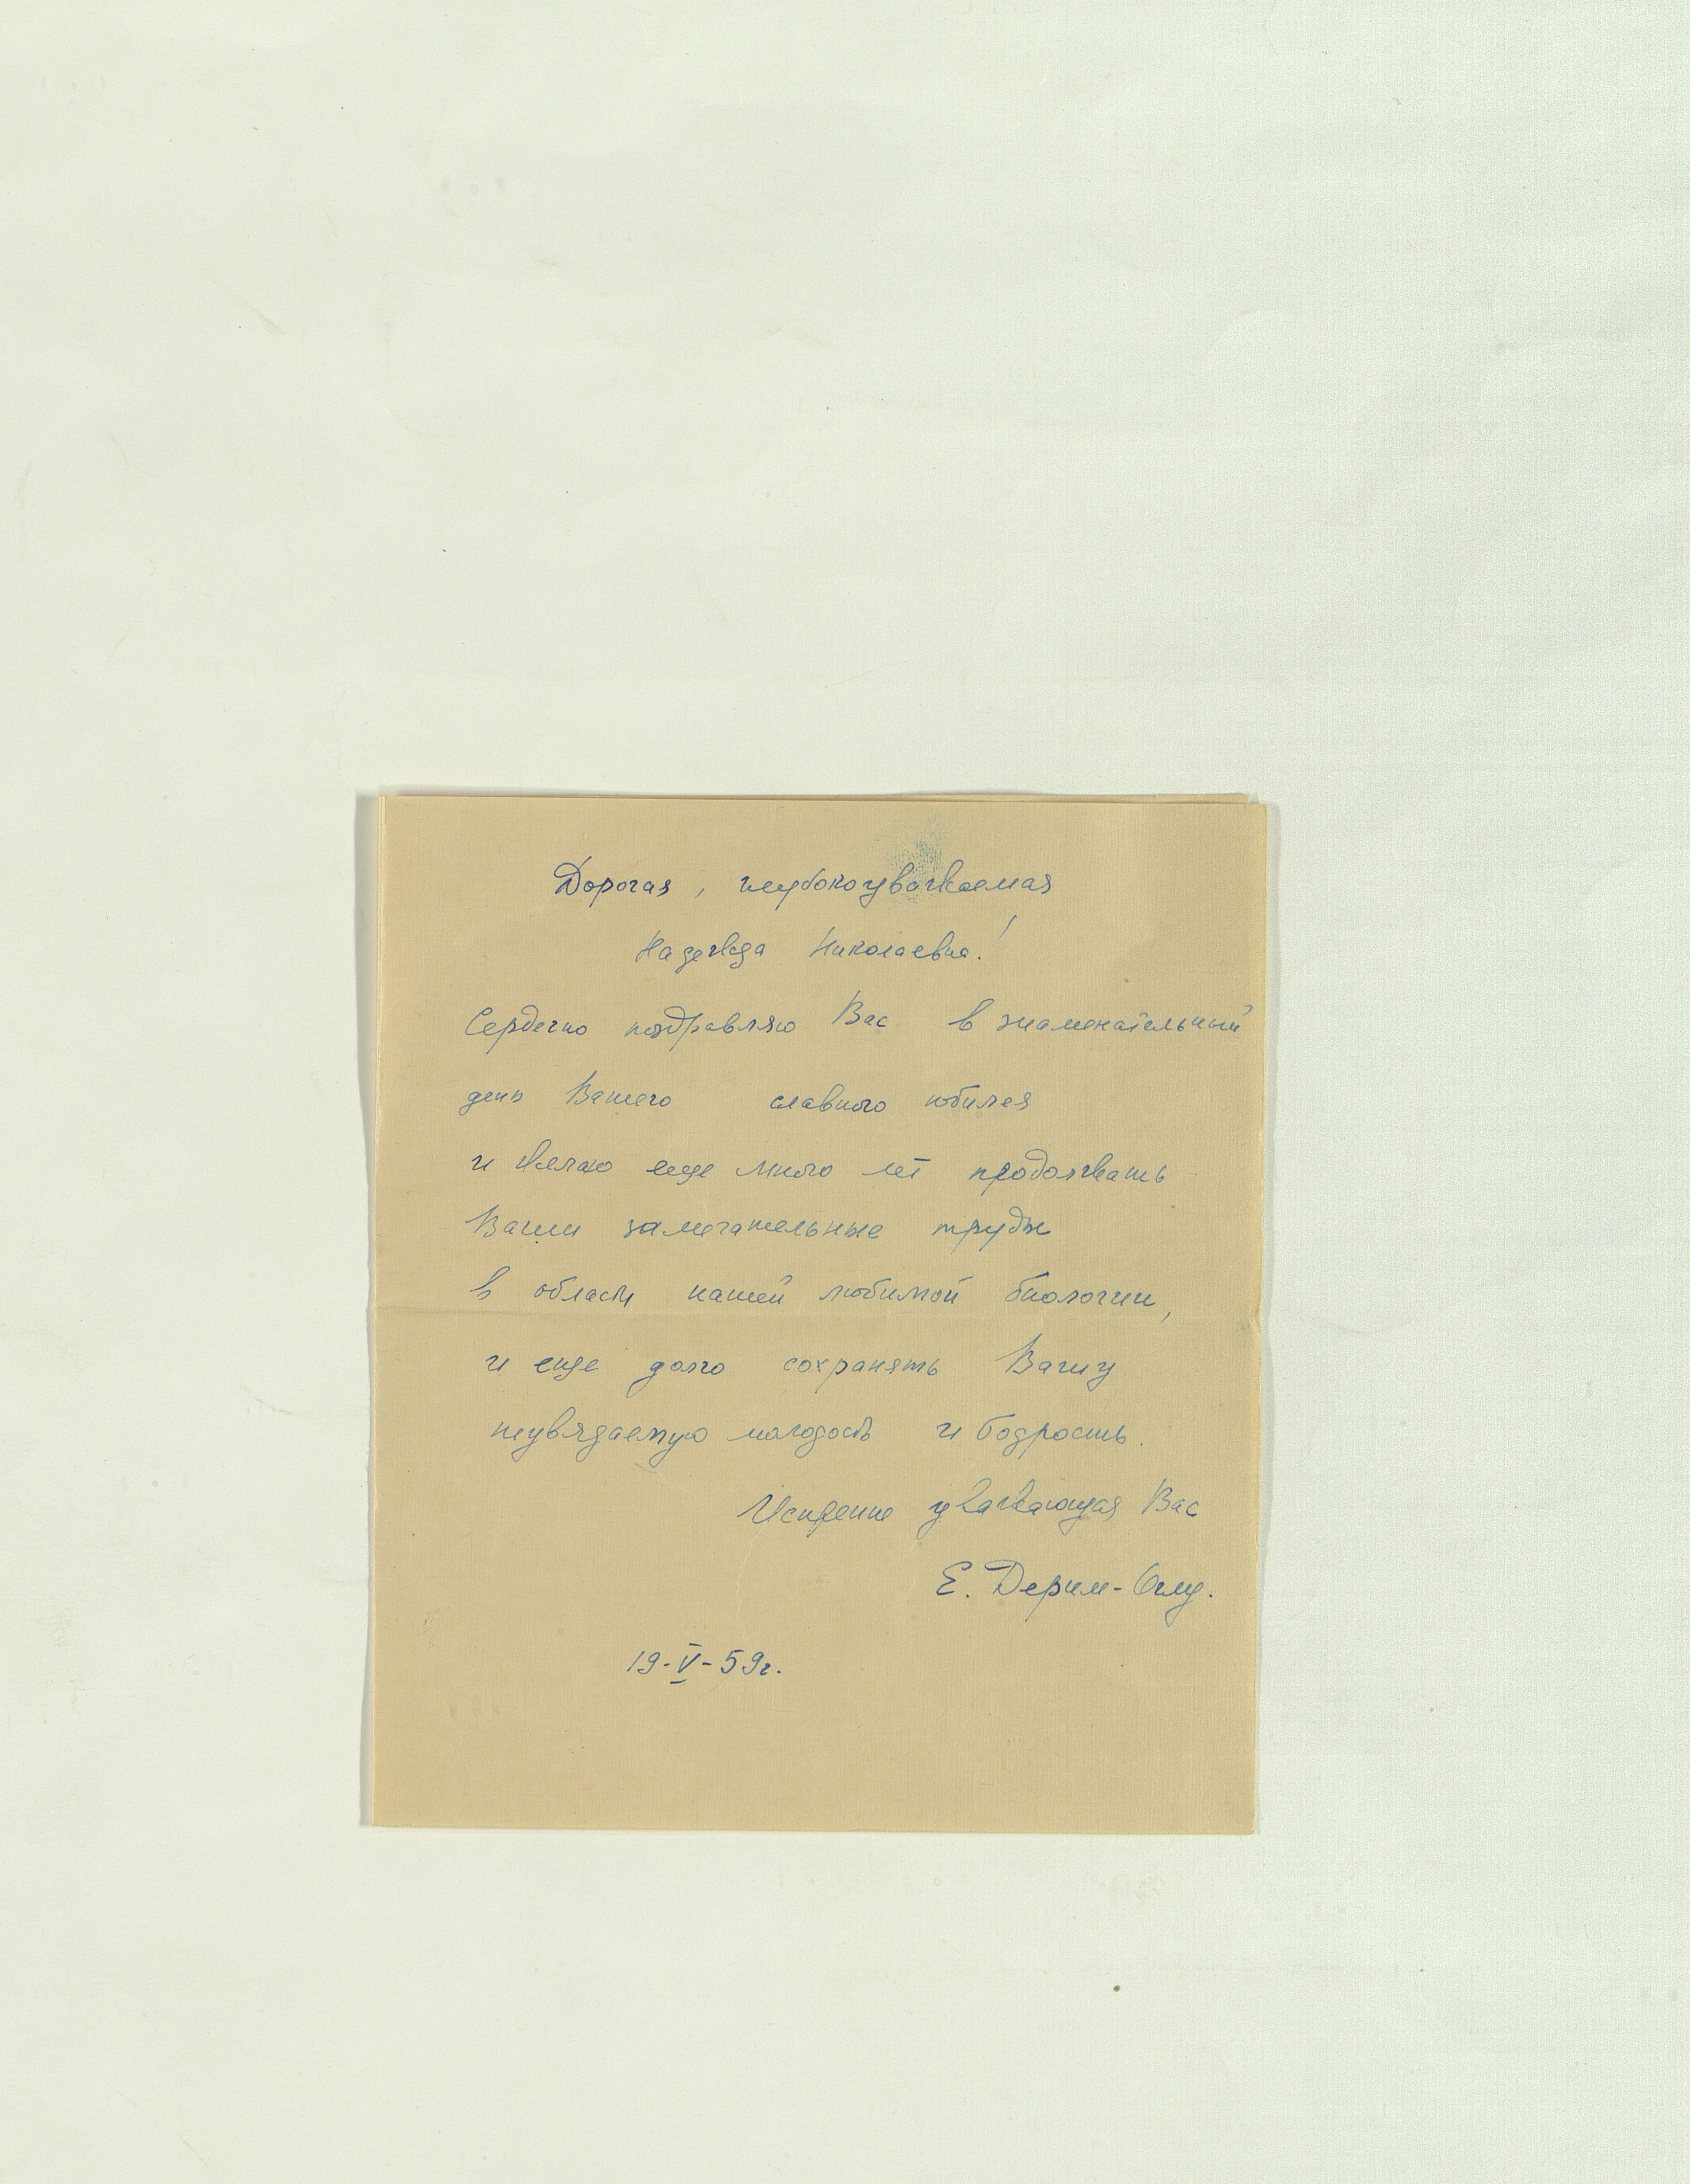 Дорогая, глубокоуважаемая
Надежда Николаевна!
Сердечно поздравляю Вас в знаменательный
день Вашего славного юбилея
и желаю еще много лет продолжать
Ваши замечательные труды
в области нашей любимой биологии,
и еще долго сохранять Вашу
неувядаемую молодость и бодрость.
Искренне уважающая Вас
Е. Дерим-Оглу.
19-V-59г.